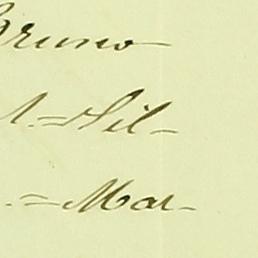 Bruno
1.=Sil-
.=Mar-